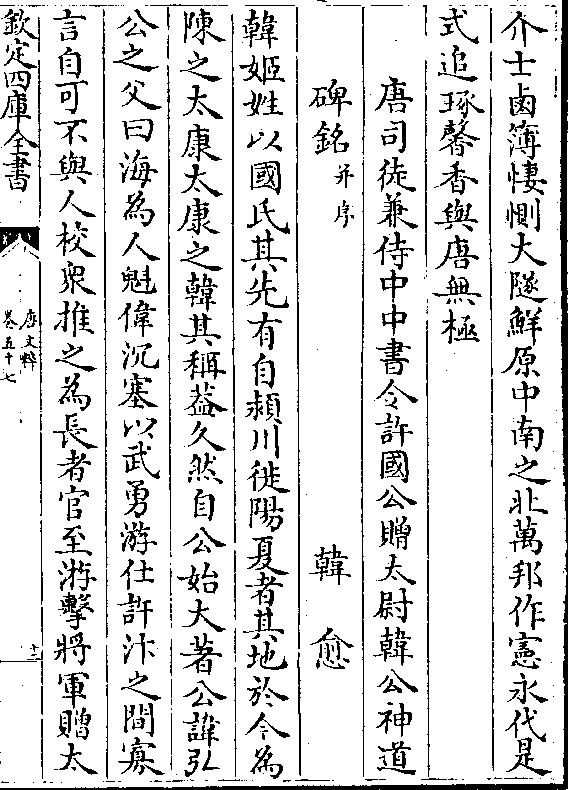 介士鹵簿悽惻大隧鮮原中南之北萬邦作憲永代是
式追琢馨香與唐無極
唐司徒兼侍中中書令許國公贈太尉韓公神道
碑銘并序
韓愈
韓姬姓以國氏其先有自潁川徙陽夏者其地於今為
陳之太康太康之韓其稱葢久然自公始大著公諱弘
公之父曰海為人魁偉沉塞以武勇游仕許汴之間寡
言自可不與人校衆推之為長者官至游擊將軍贈太
欽定四庫全書
唐文粹
卷五十七
十二